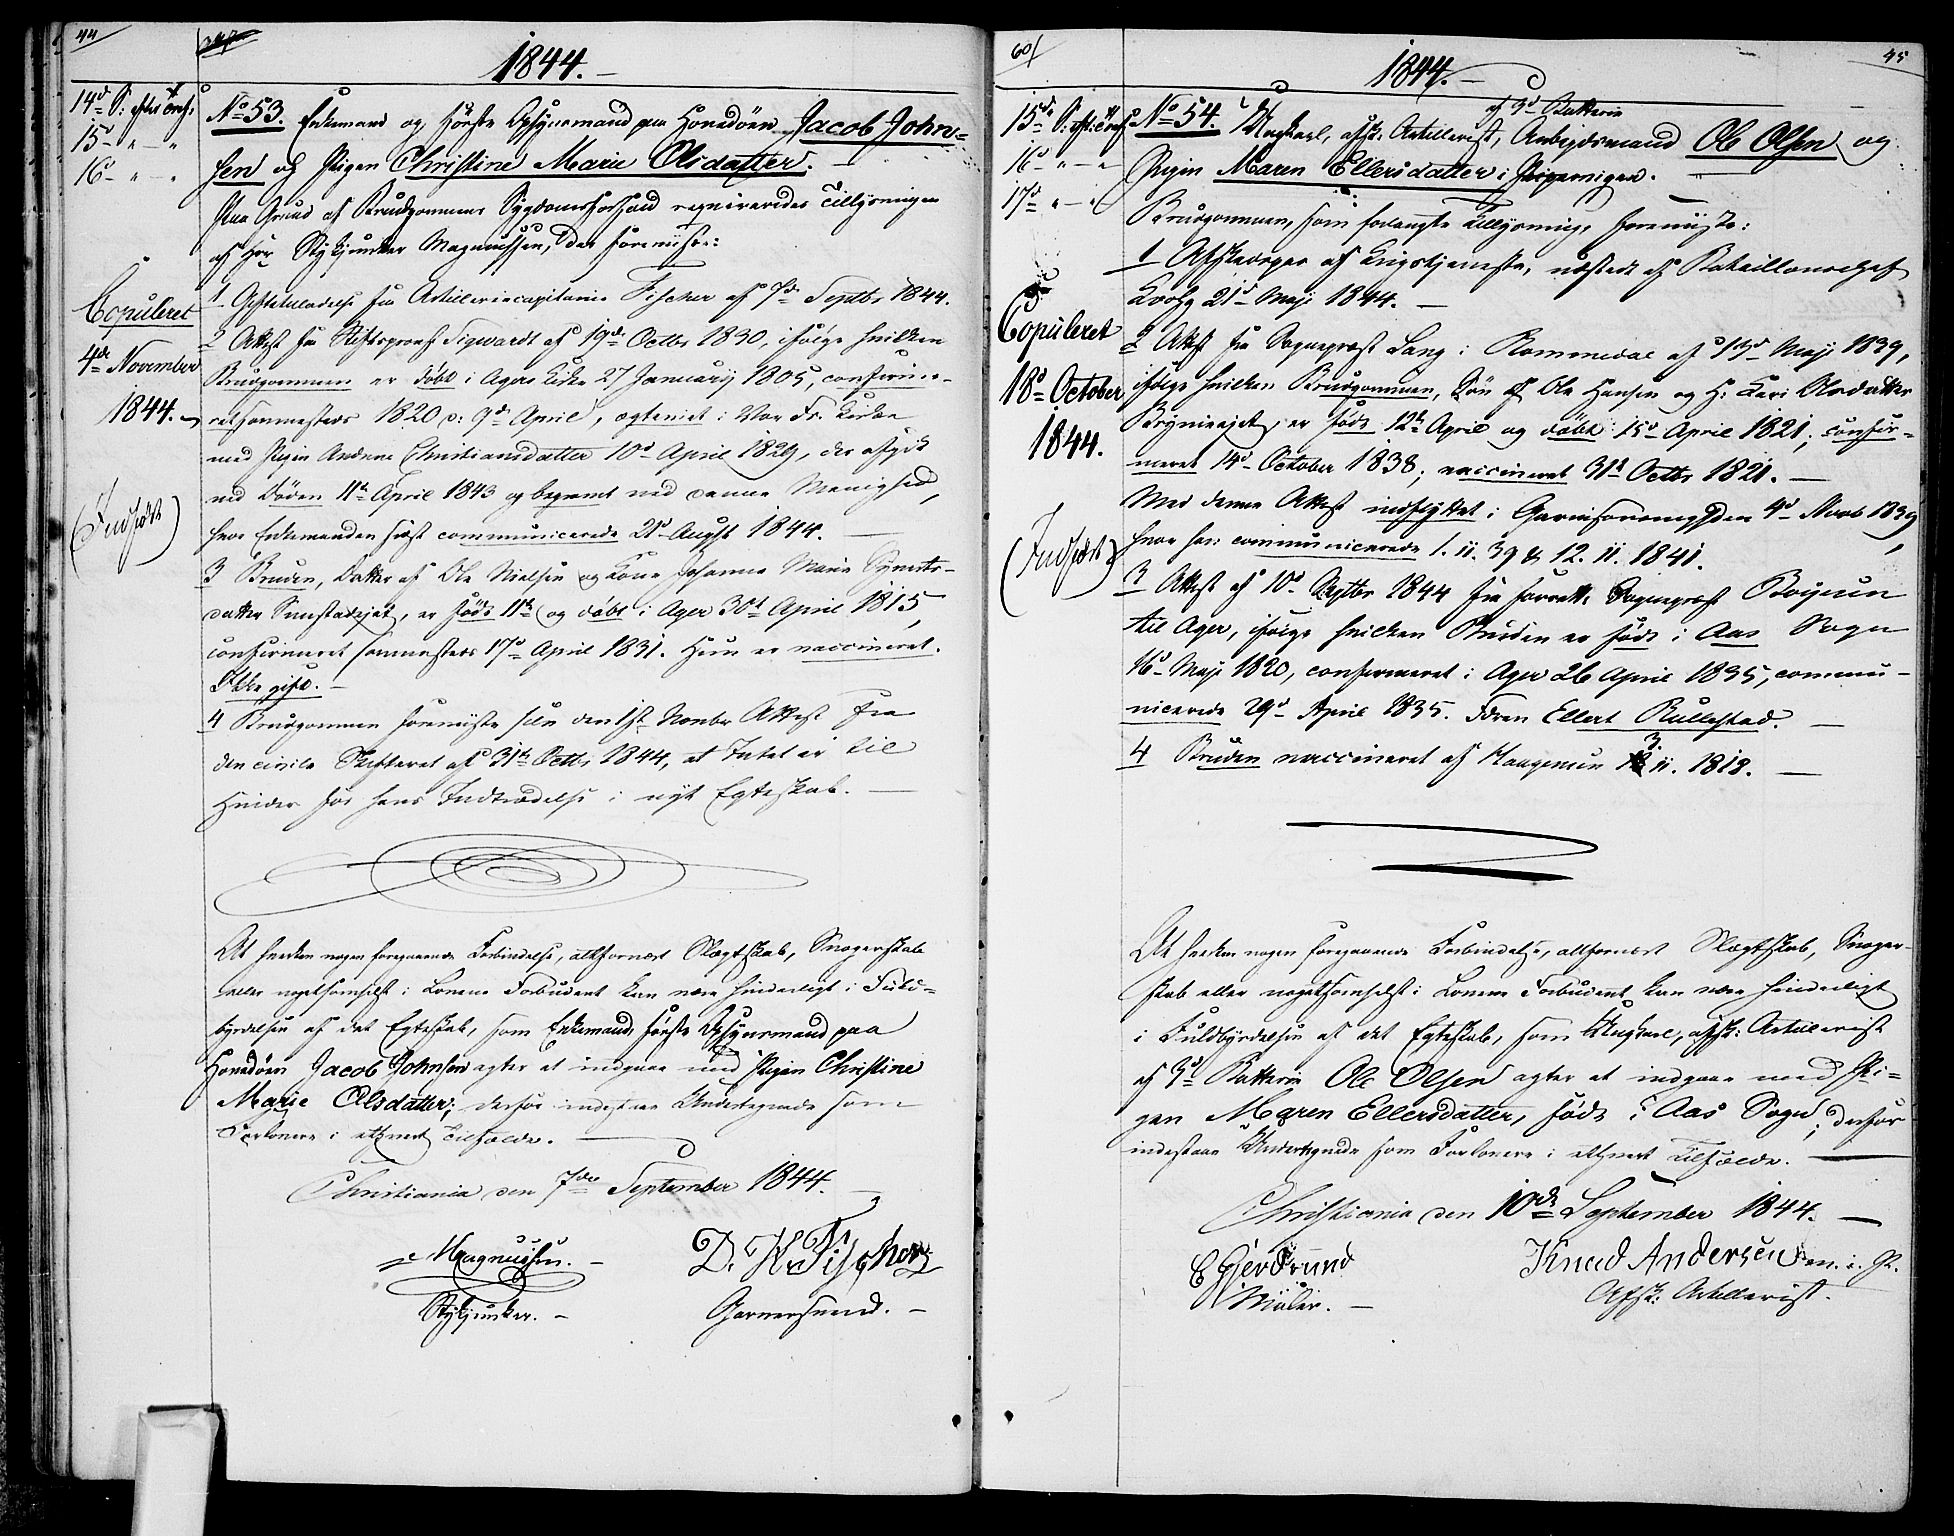 44
1844.
14d S: efter Trinf:
15d " — "
16d " — "
No 53. Enkemand og første Opsynsmand paa Hovedøen Jacob John-
sen og Pigen Christine Marie Olsdatter.
Paa Grund af Brudgommens Sygdomsforfald requireredes Tillysningen
af Hr Stykjunker Magnussen, der foreviste:
1 Giftetilladelse fra Artilleriecapitain Fischer af 7de Septbr 1844.
2 Attest fra Stiftsprovst Sigwardt af 19de Octbr 1830, ifølge hvilken
Brudgommen er døbt i Agers Kirke 27 Januarij 1805, confirme-
ret sammesteds 1820 d: 9d April, egteviet i Vor Fr. Kirke
med Pigen Andrine Christiansdatter 10d April 1829, der afgik
ved Døden 11te April 1843 og begravet ved denne Menighed,
hvor Enkemanden sidst communicerede 21d August 1844.
3 Bruden, Datter af Ole Nielsen og Kone Johanne Marie
datter , er født 11te og døbt i Ager 30te April 1815,
confirmeret sammesteds 17d April 1831. Hun er vaccineret.
Ikke gift.
4 Brudgommen foreviste siden den 1ste Novbr Attest fra
den civile Skifteret af 31te Octbr 1844, at Intet er til
Hinder for hans Indtrædelse i nyt Egteskab.
Copuleret
4de November
1844.
(Indført)
At hverken nogen foregaaende Forbindelse, altfornært Slægtskab, Svogerskab
eller nogetsomhelst i Lovene Forbudent kan være hinderligt i Fuld-
byrdelsen af det Egteskab, som Enkemand, første Opsynsmand paa
Hovedøen Jacob Johnsen agter at indgaae med Pigen Christine
Marie Olsdatter; derfor indestaae Undertegnede som
Forlovere i ethvert Tilfælde.
Christiania den 7de September 1844.
Magnussen. D. K. Fischer
Stykjunker. Garnersvend.
60
1844.
45
15de S: eft: Trinf:
16d " — "
17d " — "
af 3d Batterie
No 54. Ungkarl, afsk: Artillerist, Arbeidsmand Ole Olsen og
Pigen Maren Ellersdatter i Pipervigen.
Brudgommen, som forlangte Tillysning, foreviste:
1 Afskedspas af Krigstjeneste, udstedt af Bataillonschef
Krohg 21d Maji 1844.
2 Attest fra Sognepræst Lang i Rommedal af 13d Maji 1839,
ifølge hvilken Brudgommen, Søn af Ole Hansen og H: Kari Olsdatter
, er født 12te April og døbt 15d April 1821, confir-
meret 14d October 1838; vaccineret 31d Octbr 1821.
Med denne Attest indflyttet i Garnisonsmenigheden 4d Novb 1839,
hvor han communicerede 1. 11. 39 & 12. 11. 1841.
3 Attest af 10d Septbr 1844 fra forrette Sognepræst Boyesen
til Ager, ifølge hvilken Bruden er født i Aas Sogn
16d Maji 1820, confirmeret i Ager 26 April 1835, commu-
nicerede 29d April 1835. Fdren Ellert Rullestad.
4 Bruden vaccineret af 3. 11. 1818.
Copuleret
18d October
1844.
(Indført)
At hverken nogen foregaaende Forbindelse, altfornært Slægtskab, Svoger-
skab eller nogetsomhelst i Lovene Forbudent kan være hinderligt
i Fuldbyrdelsen af det Egteskab, som Ungkarl, afsk: Artillerist
af 3d Batterie Ole Olsen agter at indgaae med Pi-
gen Maren Ellersdatter, født i Aas Sogn; derfor
indestaae Undertegnede som Forlovere i ethvert Tilfælde.
Christiania den 10de September 1844.
E Gjerdrumd Knud Andersen m. i. P.
Maler. Afsk: Artillerist.